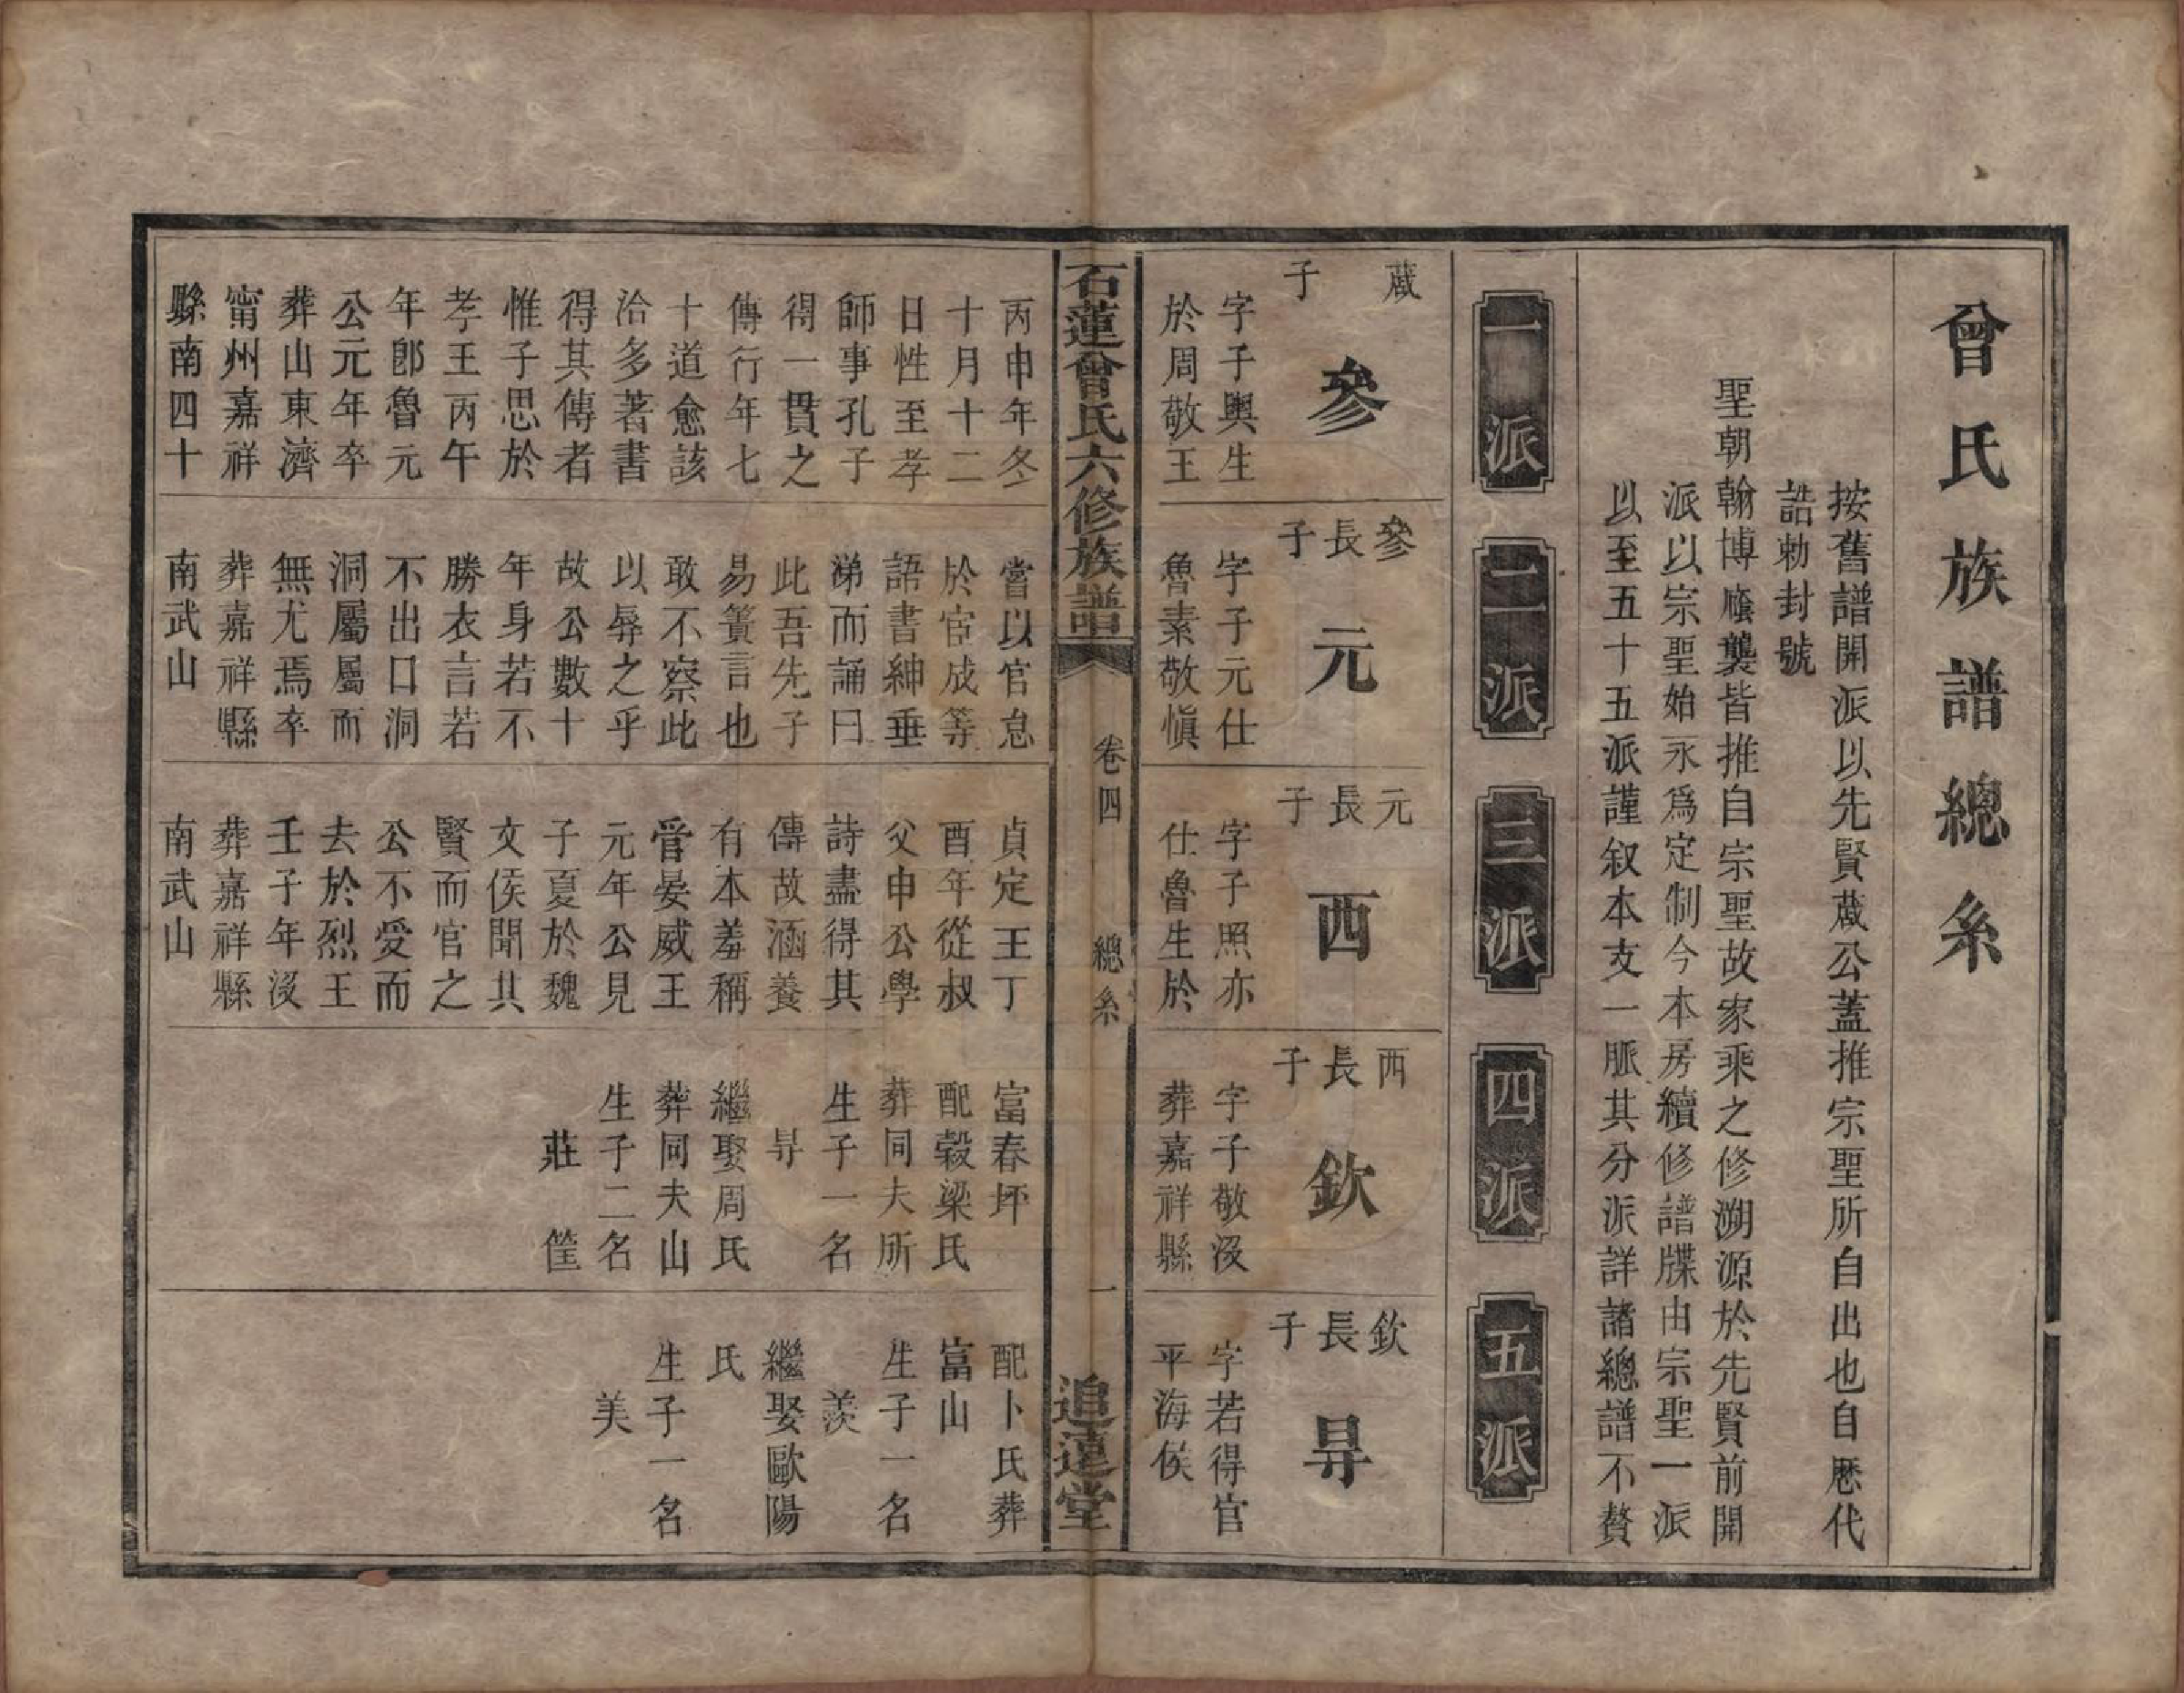 曾氏族譜總糸
按舊譜開派以先賢蒧公蓋推宗聖所自出也自歷代
誥勅封號
聖朝翰博廕襲皆推自宗聖故家乘之修溯源於先賢前開
派以宗聖始永爲定制今本房續修譜牒由宗聖一派
以至五十五派謹叙本支一脈其分派詳諸總譜不贅
一派
二派
三派
四派
五派
蒧子
參
字子輿生
於周敬王
丙申年冬
十月十二
日性至孝
師事孔子
得一貫之
傳行年七
十道愈該
洽多著書
得其傳者
惟子思於
孝王丙午
年卽魯元
公元年卒
葬山東濟
甯州嘉祥
縣南四十
參長子
元
字子元仕
魯素敬慎
嘗以官怠
於宦成等
語書紳垂
涕而誦曰
此吾先子
易簀言也
敢不察此
以辱之乎
故公數十
年身若不
勝衣言若
不出口洞
洞屬屬而
無尤焉卒
葬嘉祥縣
南武山
元長子
西
字子照亦
仕魯生於
貞定王丁
酉年從叔
父申公學
詩盡得其
傳故涵養
有本羞稱
管晏威王
元年公見
子夏於魏
文侯聞其
賢而官之
公不受而
去於烈王
壬子年沒
葬嘉祥縣
南武山
西長子
欽
字子敬沒
葬嘉祥縣
富春坪
配穀梁氏
葬同夫所
生子一名
昇
繼娶周氏
葬同夫山
生子二名
莊 筐
欽長子
昇
字若得官
平海侯
配卜氏葬
富山
生子一名
羨
繼娶歐陽
氏
生子一名
美
石蓮曾氏六修族譜
卷四
總糸
一
追遠堂